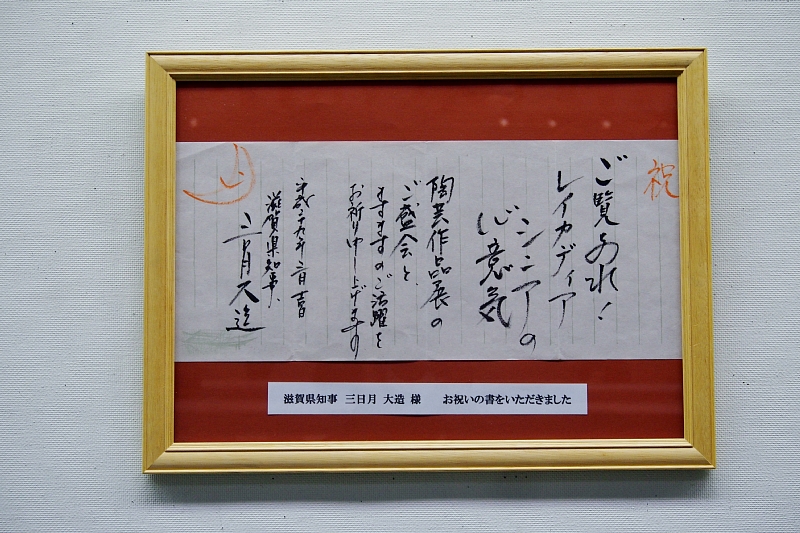 祝
ご覧あれ！
レイカディア
シニアの
心意気
陶芸作品展の
ご盛会と、
ますますのご活躍を
お祈り申し上げます
平成二十九年
滋賀県知事、
三日月大造
滋賀県知事 三日月 大造 様 お祝いの書をいただきました